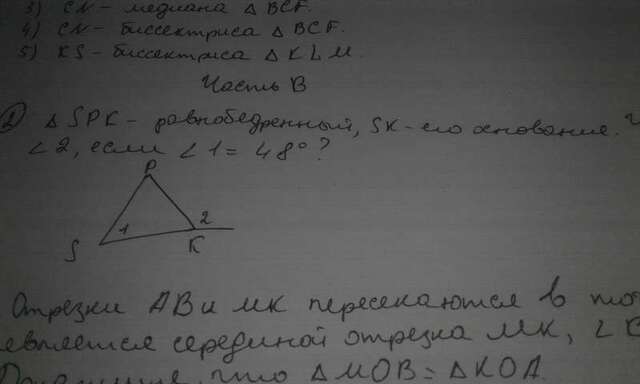 3) CN - медиана △ BCF.
4) CN - биссектриса △ BCF.
5) KS - биссектриса △ KLM.
Часть В
1 △ SPK - равнобедренный, SK - его основание.
∠2, если ∠1 = 48°?
P
1
2
S
K
Отрезки AB и МК пересекаются в
является серединой отрезка МК, ∠
что △ MOB = △ KOA